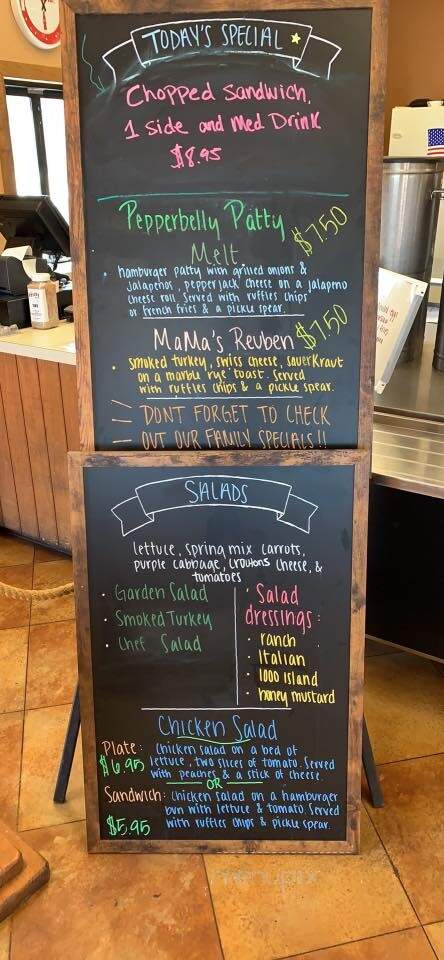 TODAY'S SPECIAL
Chopped Sandwich,
1 side and Med Drink
$8.95
Pepperbelly Patty
Melt
$7.50
• hamburger patty with grilled onions &
jalapeños, pepperjack cheese on a jalapeno
cheese roll. Served with ruffles chips
or french fries & a pickle spear.
MaMa's Reuben
$7.50
• smoked turkey, swiss cheese, sauerkraut
on a marble rye toast. Served
with ruffles chips & a pickle spear.
DONT FORGET TO CHECK
OUT OUR FAMILY SPECIALS!!
SALADS
lettuce, spring mix carrots,
purple cabbage, croutons cheese, &
tomatoes
• Garden Salad
• Smoked Turkey
• Chef Salad
• Salad
dressings:
• ranch
• Italian
• 1000 island
• honey mustard
Chicken Salad
Plate: chicken salad on a bed of
$6.95 lettuce, two slices of tomato. Served
with peaches & a stick of cheese.
OR
Sandwich: chicken salad on a hamburger
bun with lettuce & tomato. Served
$5.95 with ruffles chips & pickle spear.
menupix